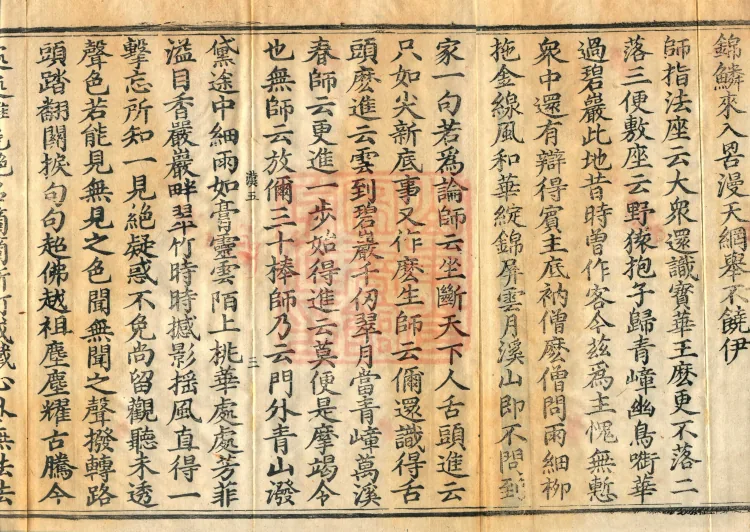 錦鱗來入罟漫天網舉不饒伊
師指法座云大衆還識寶華王麽更不落二
落三便敷座云野猿抱子歸青嶂幽鳥㘅華
過碧巖此地昔時曾作客今兹爲主愧無慙
衆中還有辯得賓主底衲僧麽僧問雨細柳
拖金線風和華綻錦屏雲月溪山即不問到
家一句若爲論師云坐斷天下人舌頭進云
只如尖新底事又作麽生師云儞還識得舌
頭麽進云雲到碧巖千仞翠月當青嶂萬溪
春師云更進一步始得進云莫便是摩竭令
也無師云放儞三十棒師乃云門外青山潑
滇五
三
黛途中細雨如膏靈雲陌上桃華處處芳菲
溢目香嚴巖畔翠竹時時撼影摇風直得一
擊忘所知一見絶疑惑不免尚留觀聽未透
聲色若能見無見之色聞無聞之聲撥轉路
頭踏翻關捩句句超佛越祖塵塵耀古騰今
心外無法法